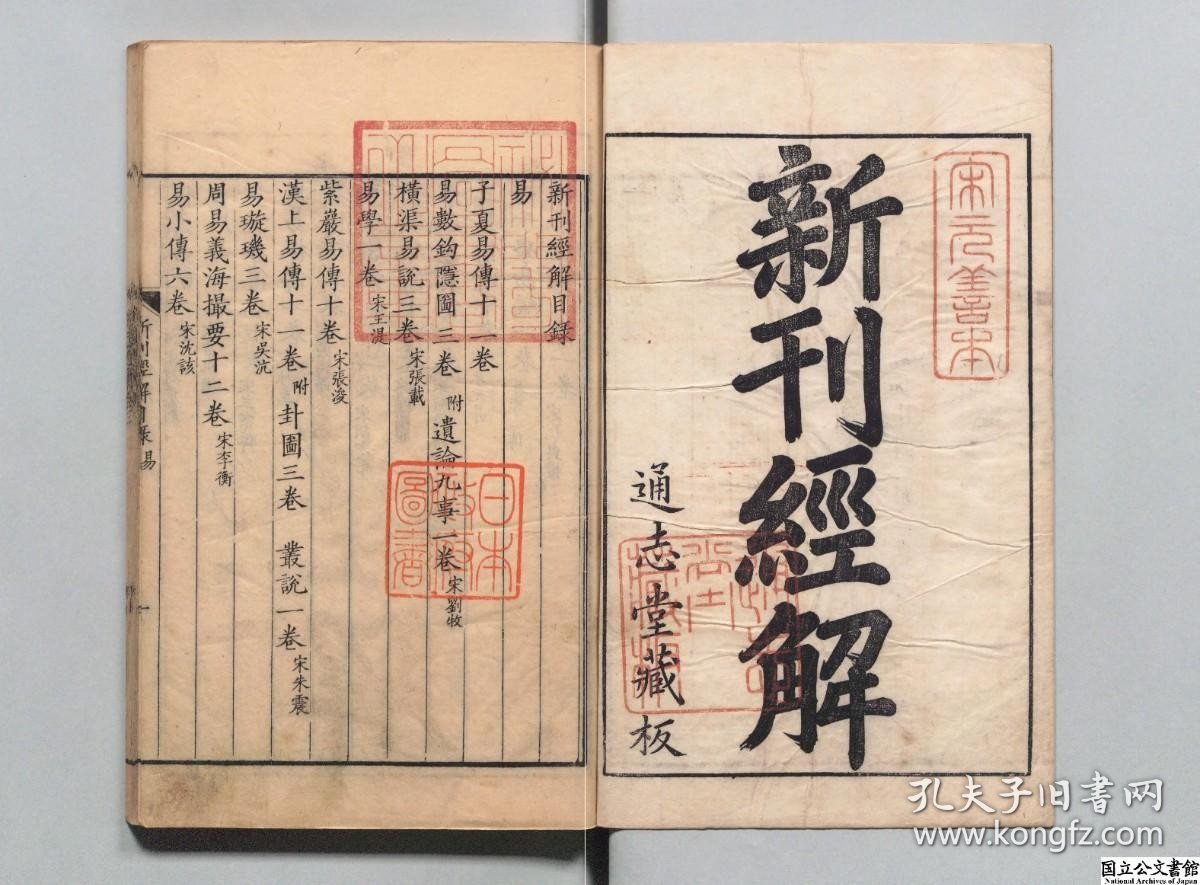 宋元善本
新刊經解
通志堂藏板
新刊經解目録
易
子夏易傳十一卷
易數鈎隱圖三卷 附遺論九事一卷 宋劉牧
橫渠易說三卷 宋張載
易學一卷 宋王湜
紫巖易傳十卷 宋張浚
漢上易傳十一卷 附卦圖三卷 叢說一卷 宋朱震
易璇璣三卷 宋吳沆
周易義海撮要十二卷 宋李衡
易小傳六卷 宋沈該
新刊經解目录易
日本
政府
圖書
孔夫子旧書网
www.kongfz.com
国立公文書館
National Archives of Japan